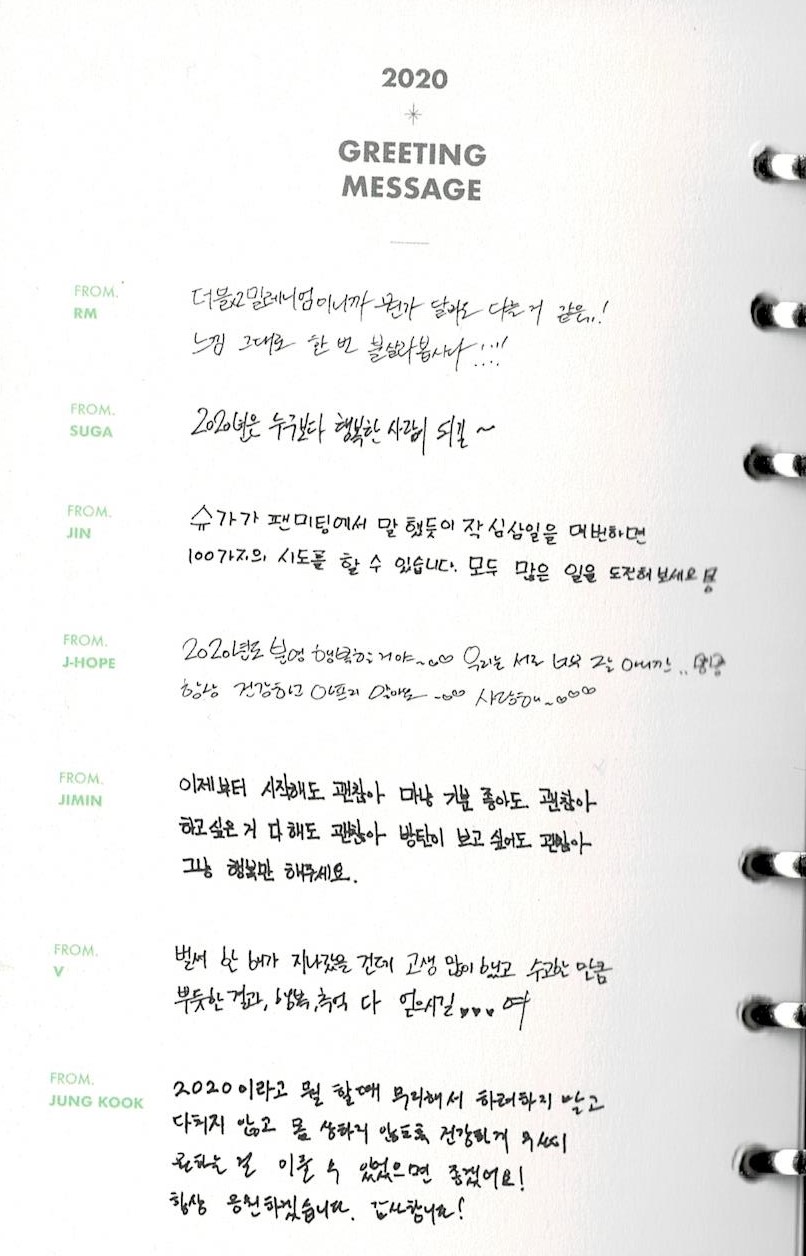 2020
GREETING
MESSAGE
FROM.
RM
더블2밀레니엄이니까 뭔가 달라도 다를 거 같은..!
느낌 그대로 한 번 불살라봅시다 !!!
FROM.
SUGA
2020년은 누구보다 행복한 사람이 되길 ~
FROM.
JIN
슈가가 팬미팅에서 말 했듯이 작심삼일을 여러번하면
100가지의 시도를 할 수 있습니다. 모두 많은 일을 도전해보세요
FROM.
J-HOPE
2020년도 분명 행복할거야~ 우리는 서로 너무 잘 아니깐..
항상 건강하고 아프지 않아도 ~ 사랑해~
FROM.
JIMIN
이제부터 시작해도 괜찮아 마냥 기분 좋아도 괜찮아
하고싶은 거 다 해도 괜찮아 방탄이 보고 싶어도 괜찮아
그냥 행복만 해주세요.
FROM.
V
벌써 한 해가 지나갔을 건데 고생 많이 했고 수고한 만큼
뿌듯한 결과, 행복, 추억 다 얻으시길 ♥♥♥
FROM.
JUNG KOOK
2020이라고 뭘 할때 무리해서 하려하지 말고
다치지 않고 몸 상하지 않도록 건강하게
원하는 걸 이룰 수 있었으면 좋겠어요!
항상 응원하겠습니다. 감사합니다!